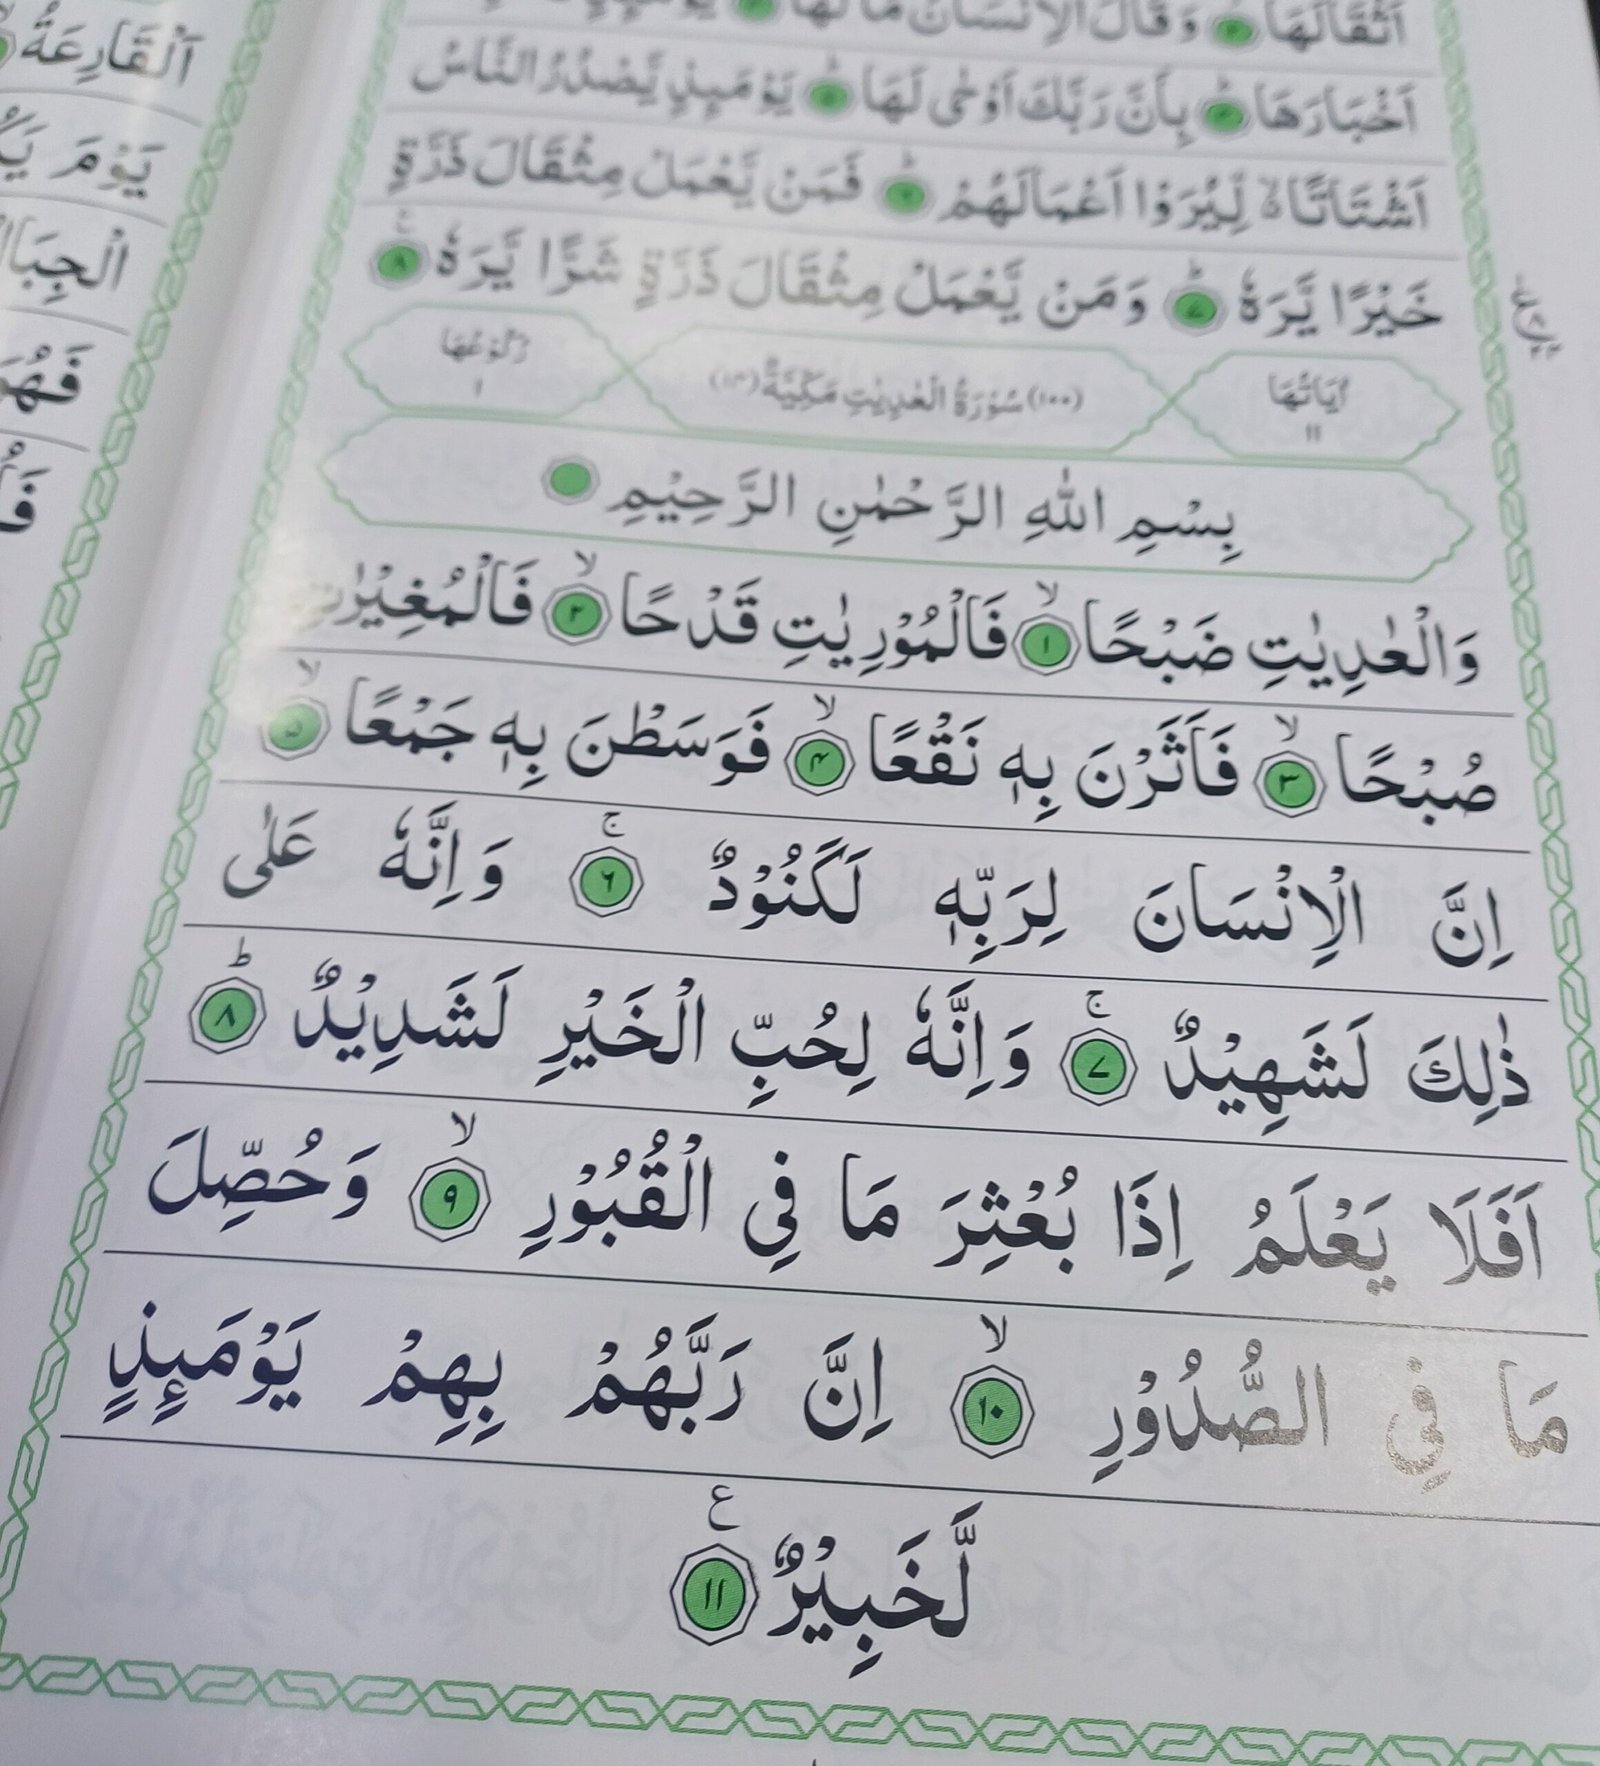 اَثْقَالَهَا ۲ وَقَالَ الْاِنْسَانُ مَا لَهَا
اَخْبَارَهَا ۴ بِاَنَّ رَبَّكَ اَوْحٰى لَهَا ۵ يَوْمَئِذٍ يَّصْدُرُ النَّاسُ
اَشْتَاتًا ۙ لِّيُرَوْا اَعْمَالَهُمْ ۶ فَمَنْ يَّعْمَلْ مِثْقَالَ ذَرَّةٍ
خَيْرًا يَّرَهٗ ۷ وَمَنْ يَّعْمَلْ مِثْقَالَ ذَرَّةٍ شَرًّا يَّرَهٗ ۸
اٰيَاتُهَا ۱۱ (۱۰۰) سُوْرَةُ الْعٰدِيٰتِ مَكِّيَّةٌ (۱۴) رُكُوْعُهَا ۱
بِسْمِ اللّٰهِ الرَّحْمٰنِ الرَّحِيْمِ
وَالْعٰدِيٰتِ ضَبْحًا ۙ ۱ فَالْمُوْرِيٰتِ قَدْحًا ۙ ۲ فَالْمُغِيْرٰتِ
صُبْحًا ۙ ۳ فَاَثَرْنَ بِهٖ نَقْعًا ۙ ۴ فَوَسَطْنَ بِهٖ جَمْعًا ۙ ۵
اِنَّ الْاِنْسَانَ لِرَبِّهٖ لَكَنُوْدٌ ۚ ۶ وَاِنَّهٗ عَلٰى
ذٰلِكَ لَشَهِيْدٌ ۚ ۷ وَاِنَّهٗ لِحُبِّ الْخَيْرِ لَشَدِيْدٌ ؕ ۸
اَفَلَا يَعْلَمُ اِذَا بُعْثِرَ مَا فِي الْقُبُوْرِ ۙ ۹ وَحُصِّلَ
مَا فِي الصُّدُوْرِ ۙ ۱۰ اِنَّ رَبَّهُمْ بِهِمْ يَوْمَئِذٍ
لَّخَبِيْرٌ ۱۱ ع
اَلْقَارِعَةُ
يَوْمَ
الْجِبَالُ
فَهُوَ